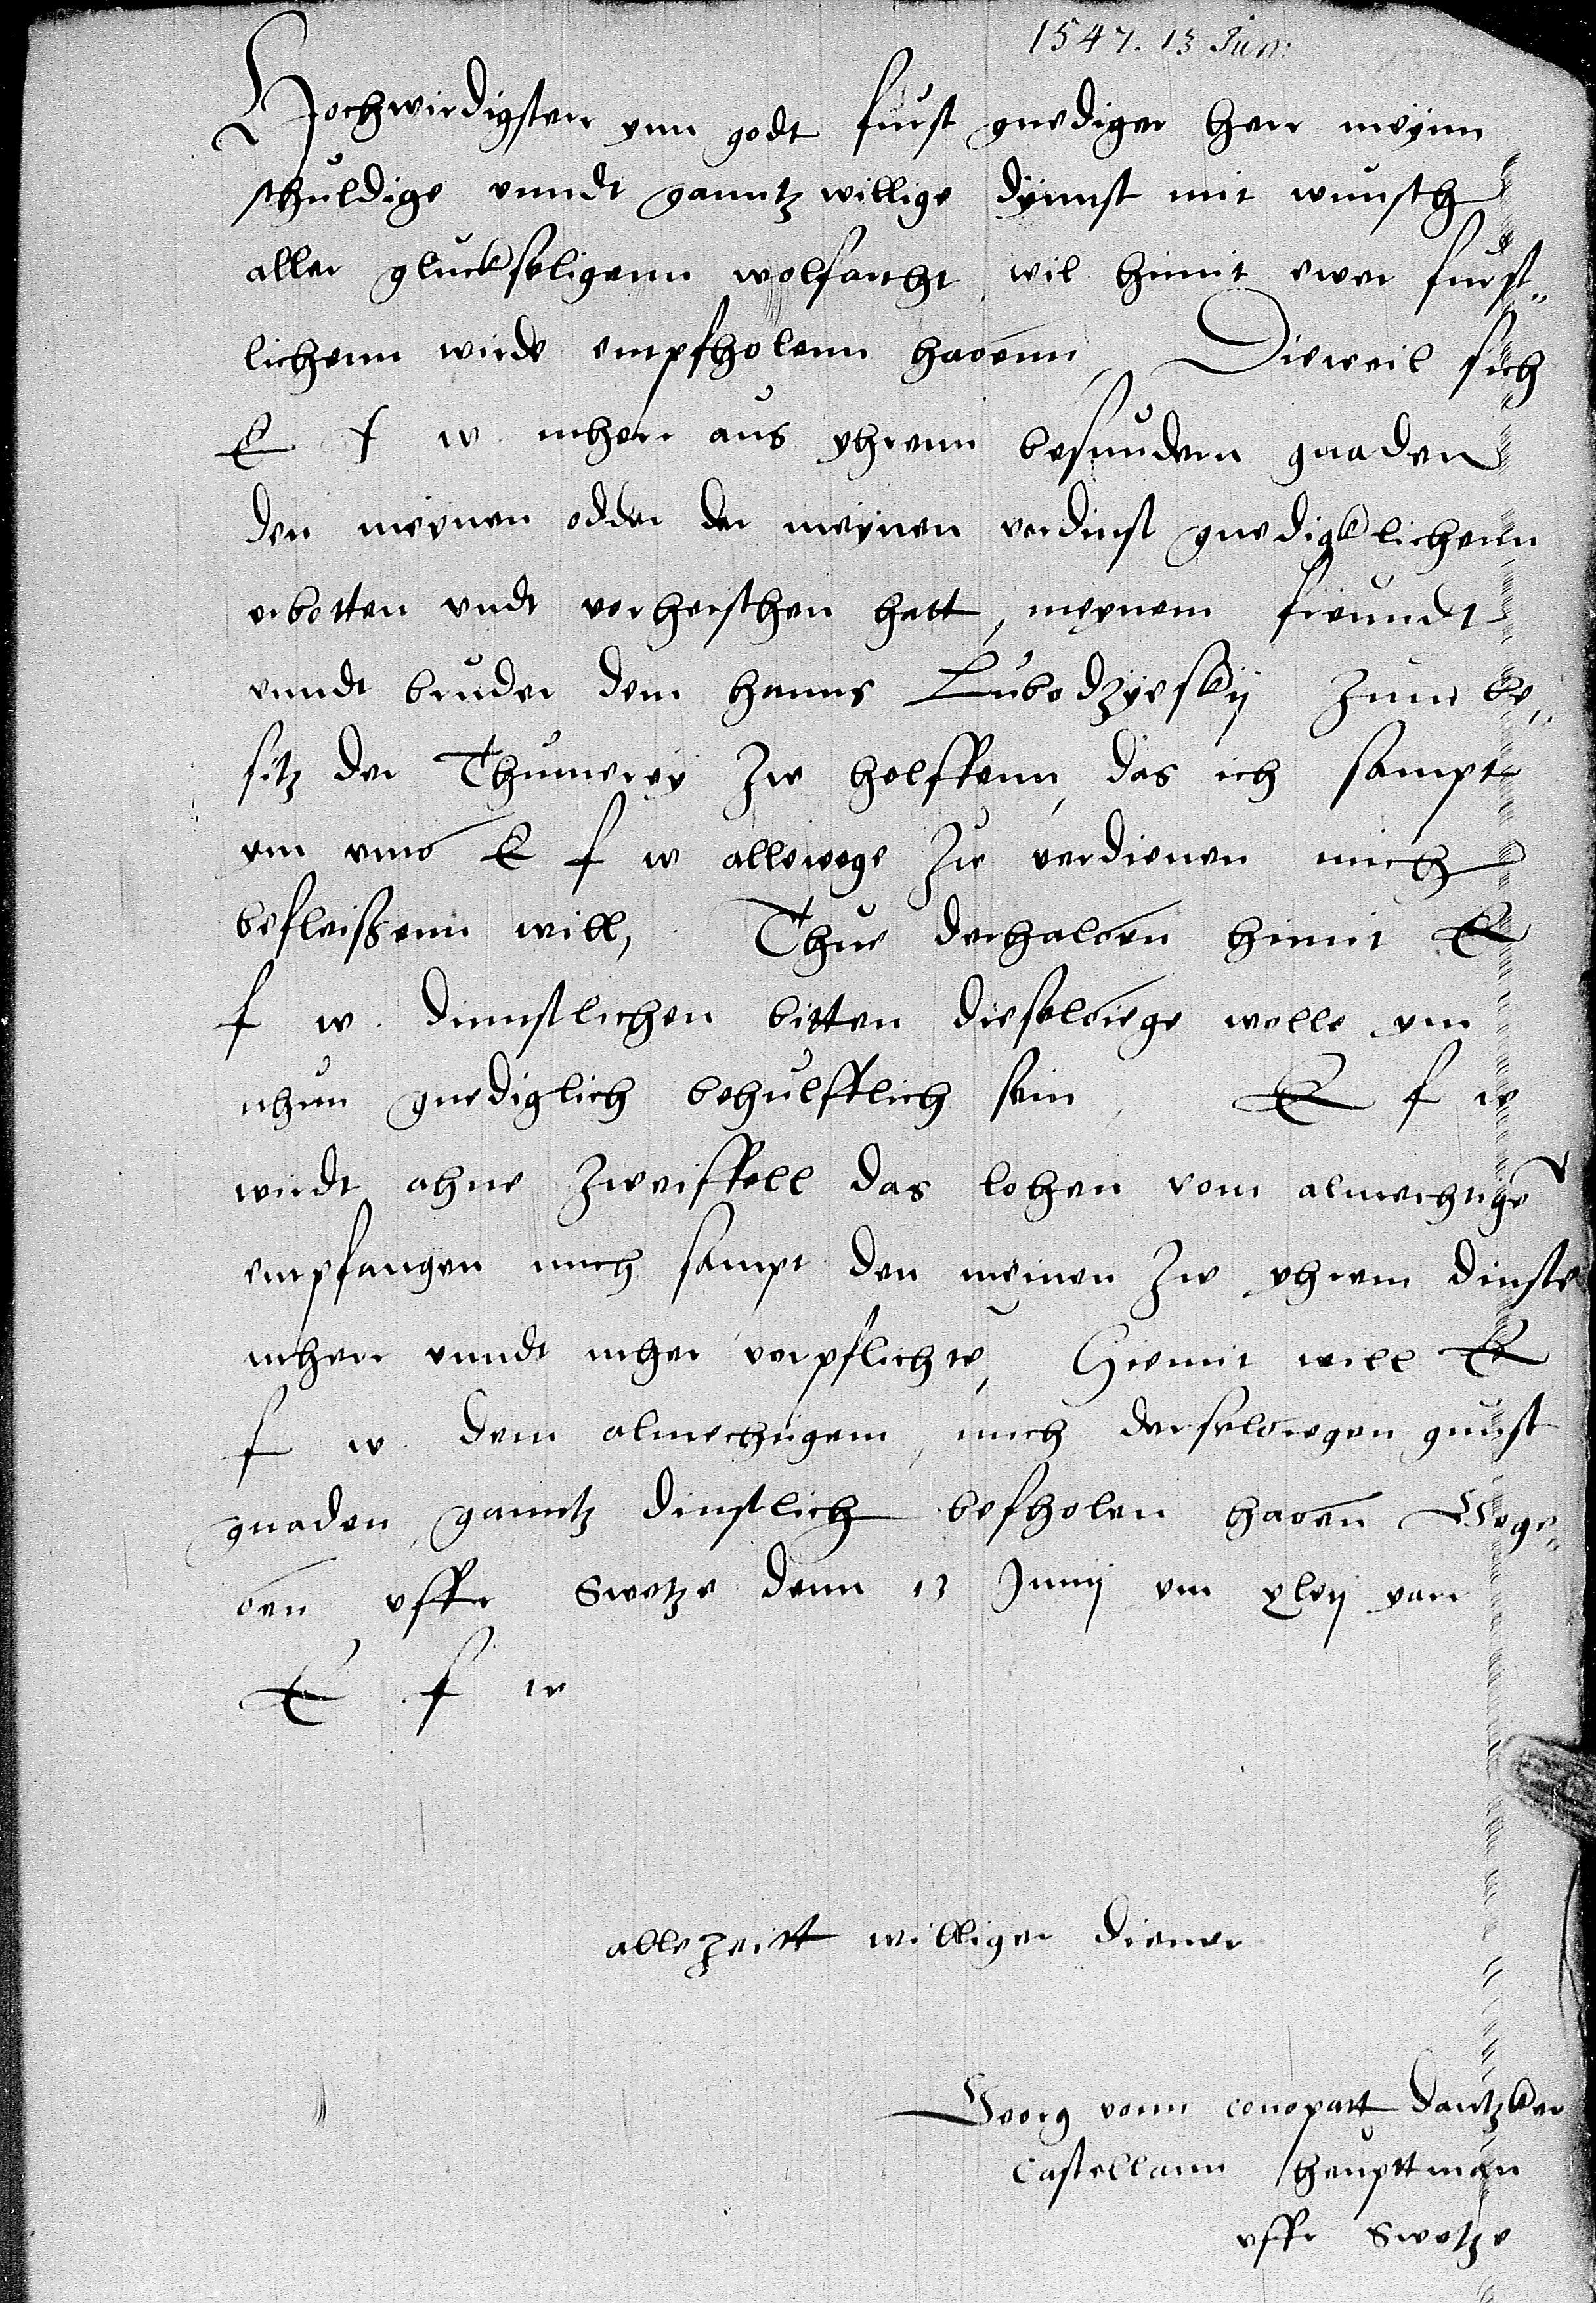 1547. 13 Jun:
Hochwirdigster ynn godt furst gnediger herr meynn
schuldige vnndt ganntz willige dynnst mit wunsch
aller gluckseligenn wolfarht wil himit ewer furst„
lichenn wirde empfholenn havenn, Dieweil sich
E f w. mherr aus yhrenn besundern gnaden
den meynen odder der meynen verdinst gnedigklichenn
erbotten vndt verheischen hatt, meynem freundt
vnndt bruder dem hanns Lubodzyesky zum be„
sitz der Thumerey zw helffenn, das ich sampt
ym vmb E f w allewege zu verdienen mich
befleissenn will, Thue derhalven himit E
f w. dinnstlichen bitten dieselvige wolle ym
nhun gnediglich behulfflich sein, E f w
wirdt ahne zweiffell das lohen vom almechtige
empfangen mich sampt den meinen zw yhrem dinste
mherr vnndt mher verpflichte, Hiemit will E
f w. dem almechtigem, mich derselvigen gunst
gnaden, ganntz dinstlich befholen haven Gege„
ven vffr Swetze denn 13 Junij ym xlvij yarr
E f w
allezeitt williger diener
Georg vonn conopatt dantzker
Castellann heupttman
vffr Swetze